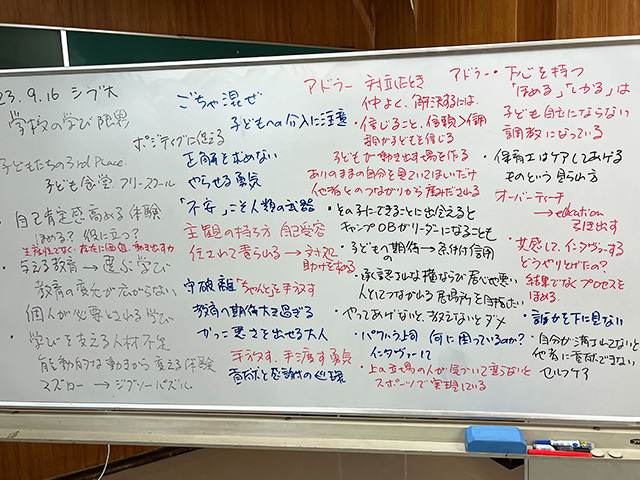 23.9.16 シブ大
学校の学び 限界
子どもたちの3rd Place
子ども食堂 フリースクール
・自己肯定感高める体験
ほめる? 役に立つ?
生産性でなく、存在に価値、動き出すか
・与える教育 → 選ぶ学び
教育の変化が広がらない
個人が必要とされる学び
・学びを支える人材不足
能動的な動きから変える体験
マズロー → ジグソーパズル
ごちゃ混ぜ
子どもへの介入に注意
ポジティブに捉える
正解を求めない
やらせる勇気
「不安」こそ人類の武器
主観の持ち方 自己受容
任されて育られる → 対処
助けを求める
守破離 "ちゃんと"を手放す
教育へ期待大き過ぎる
かっこ悪さを出せる大人
手放す、手渡す勇気
貢献と感謝の循環
アドラー 対立したとき
仲よく、解決するには、
・信じること、信頼>信用
親が子どもを信じる
子どもが動き出す場を作る
ありのままの自分を見ていてほしいだけ
他者とのつながりから産みだされる
・その子にできることに出会えると
キャンプOBがリーダーになることも
・子どもへ期待 → 条件付信用
・承認されしな横ならび居心地悪い
人としてつながれる居場所を目指したい
・やってあげないと、教えないとダメ
・パワハラ上司 何に困っているのか?
インタヴューして
・上の立場の人が気づいて変らないと
スポーツで実現している
アドラー・下心を持つ
「ほめる」「しかる」は
子ども自立にならない
調教になっている
・保育士はケアしてあげる
ものという見られ方
オーバーティーチ
→ education
引き出す
・共感して、インタヴューする
どうやりとげたの?
結果でなくプロセスを
ほめる。
・誰かを下に見ない
・自分が満たしてないと
他者に貢献できない
セルフケア